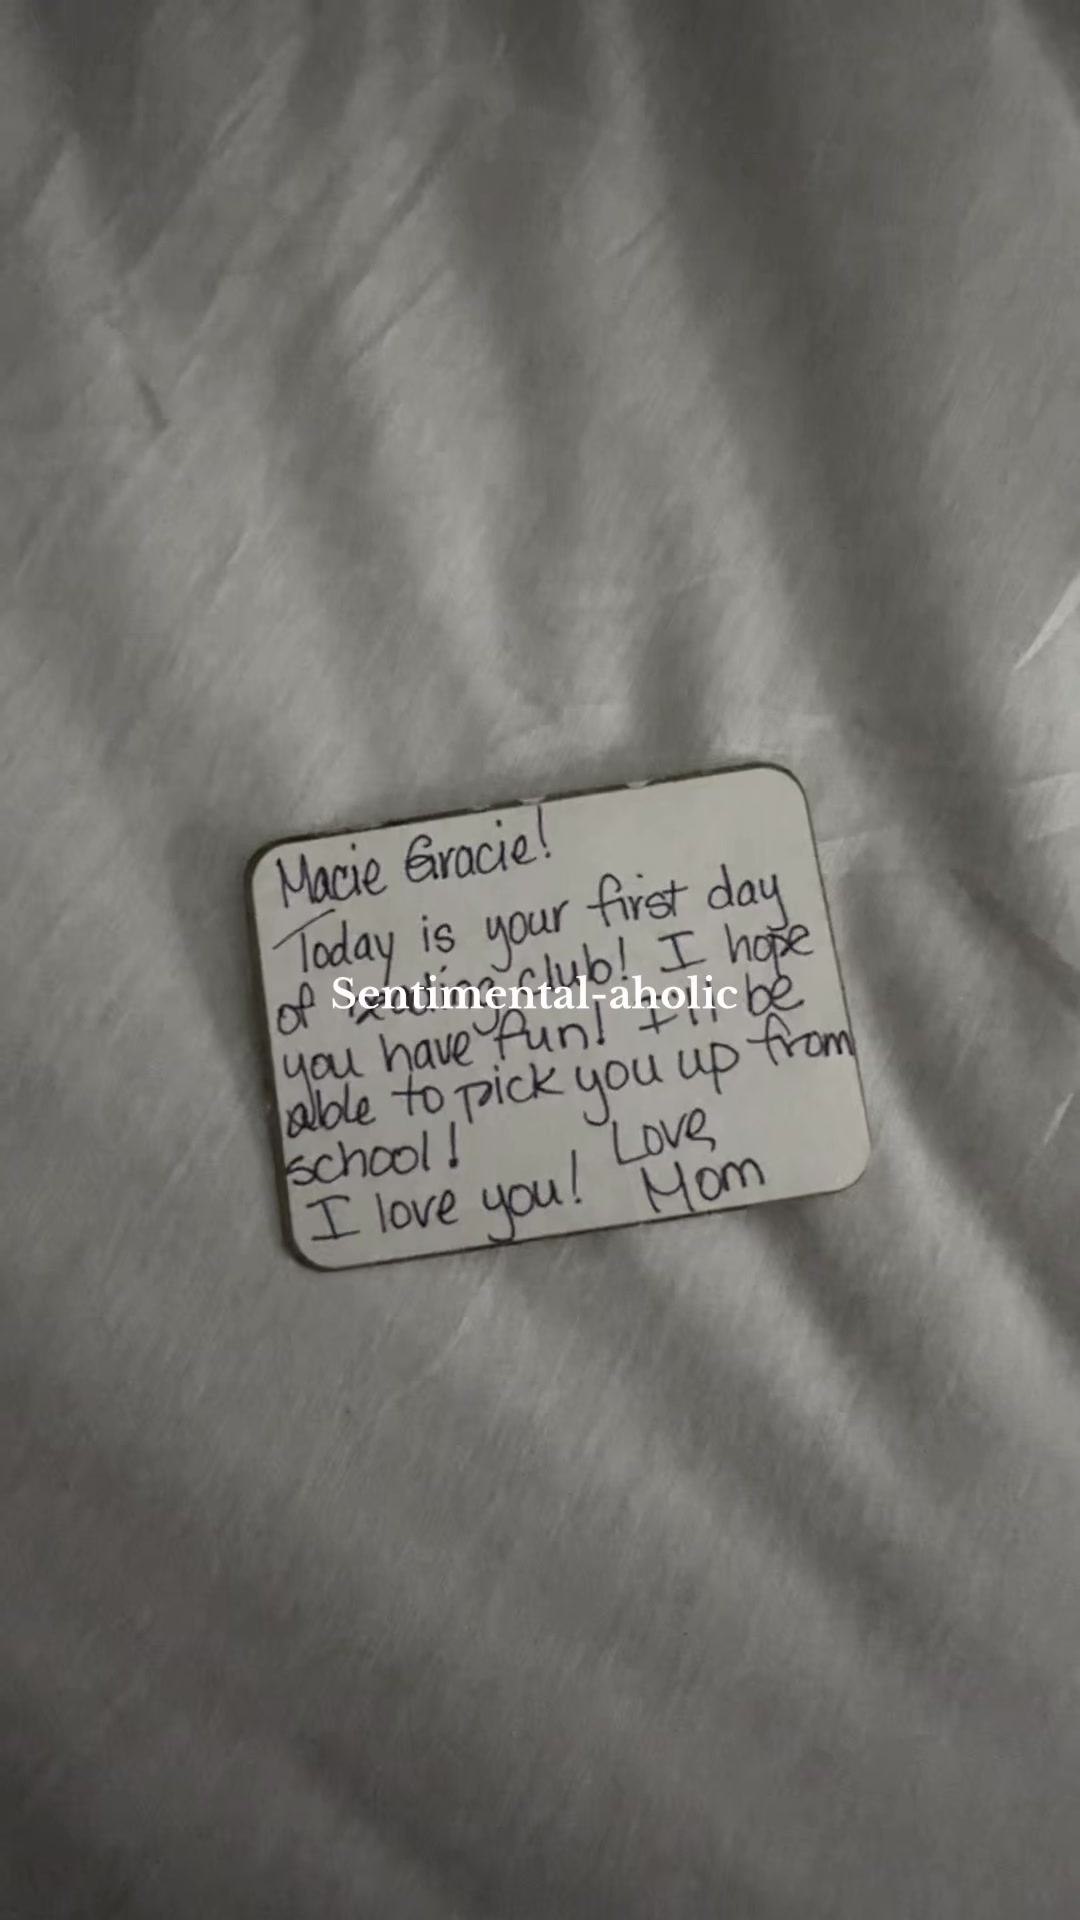 Macie Gracie!
Today is your first day
of reading club! I hope
Sentimental-aholic
you have fun! I'll be
able to pick you up from
school!
Love,
I love you!
Mom